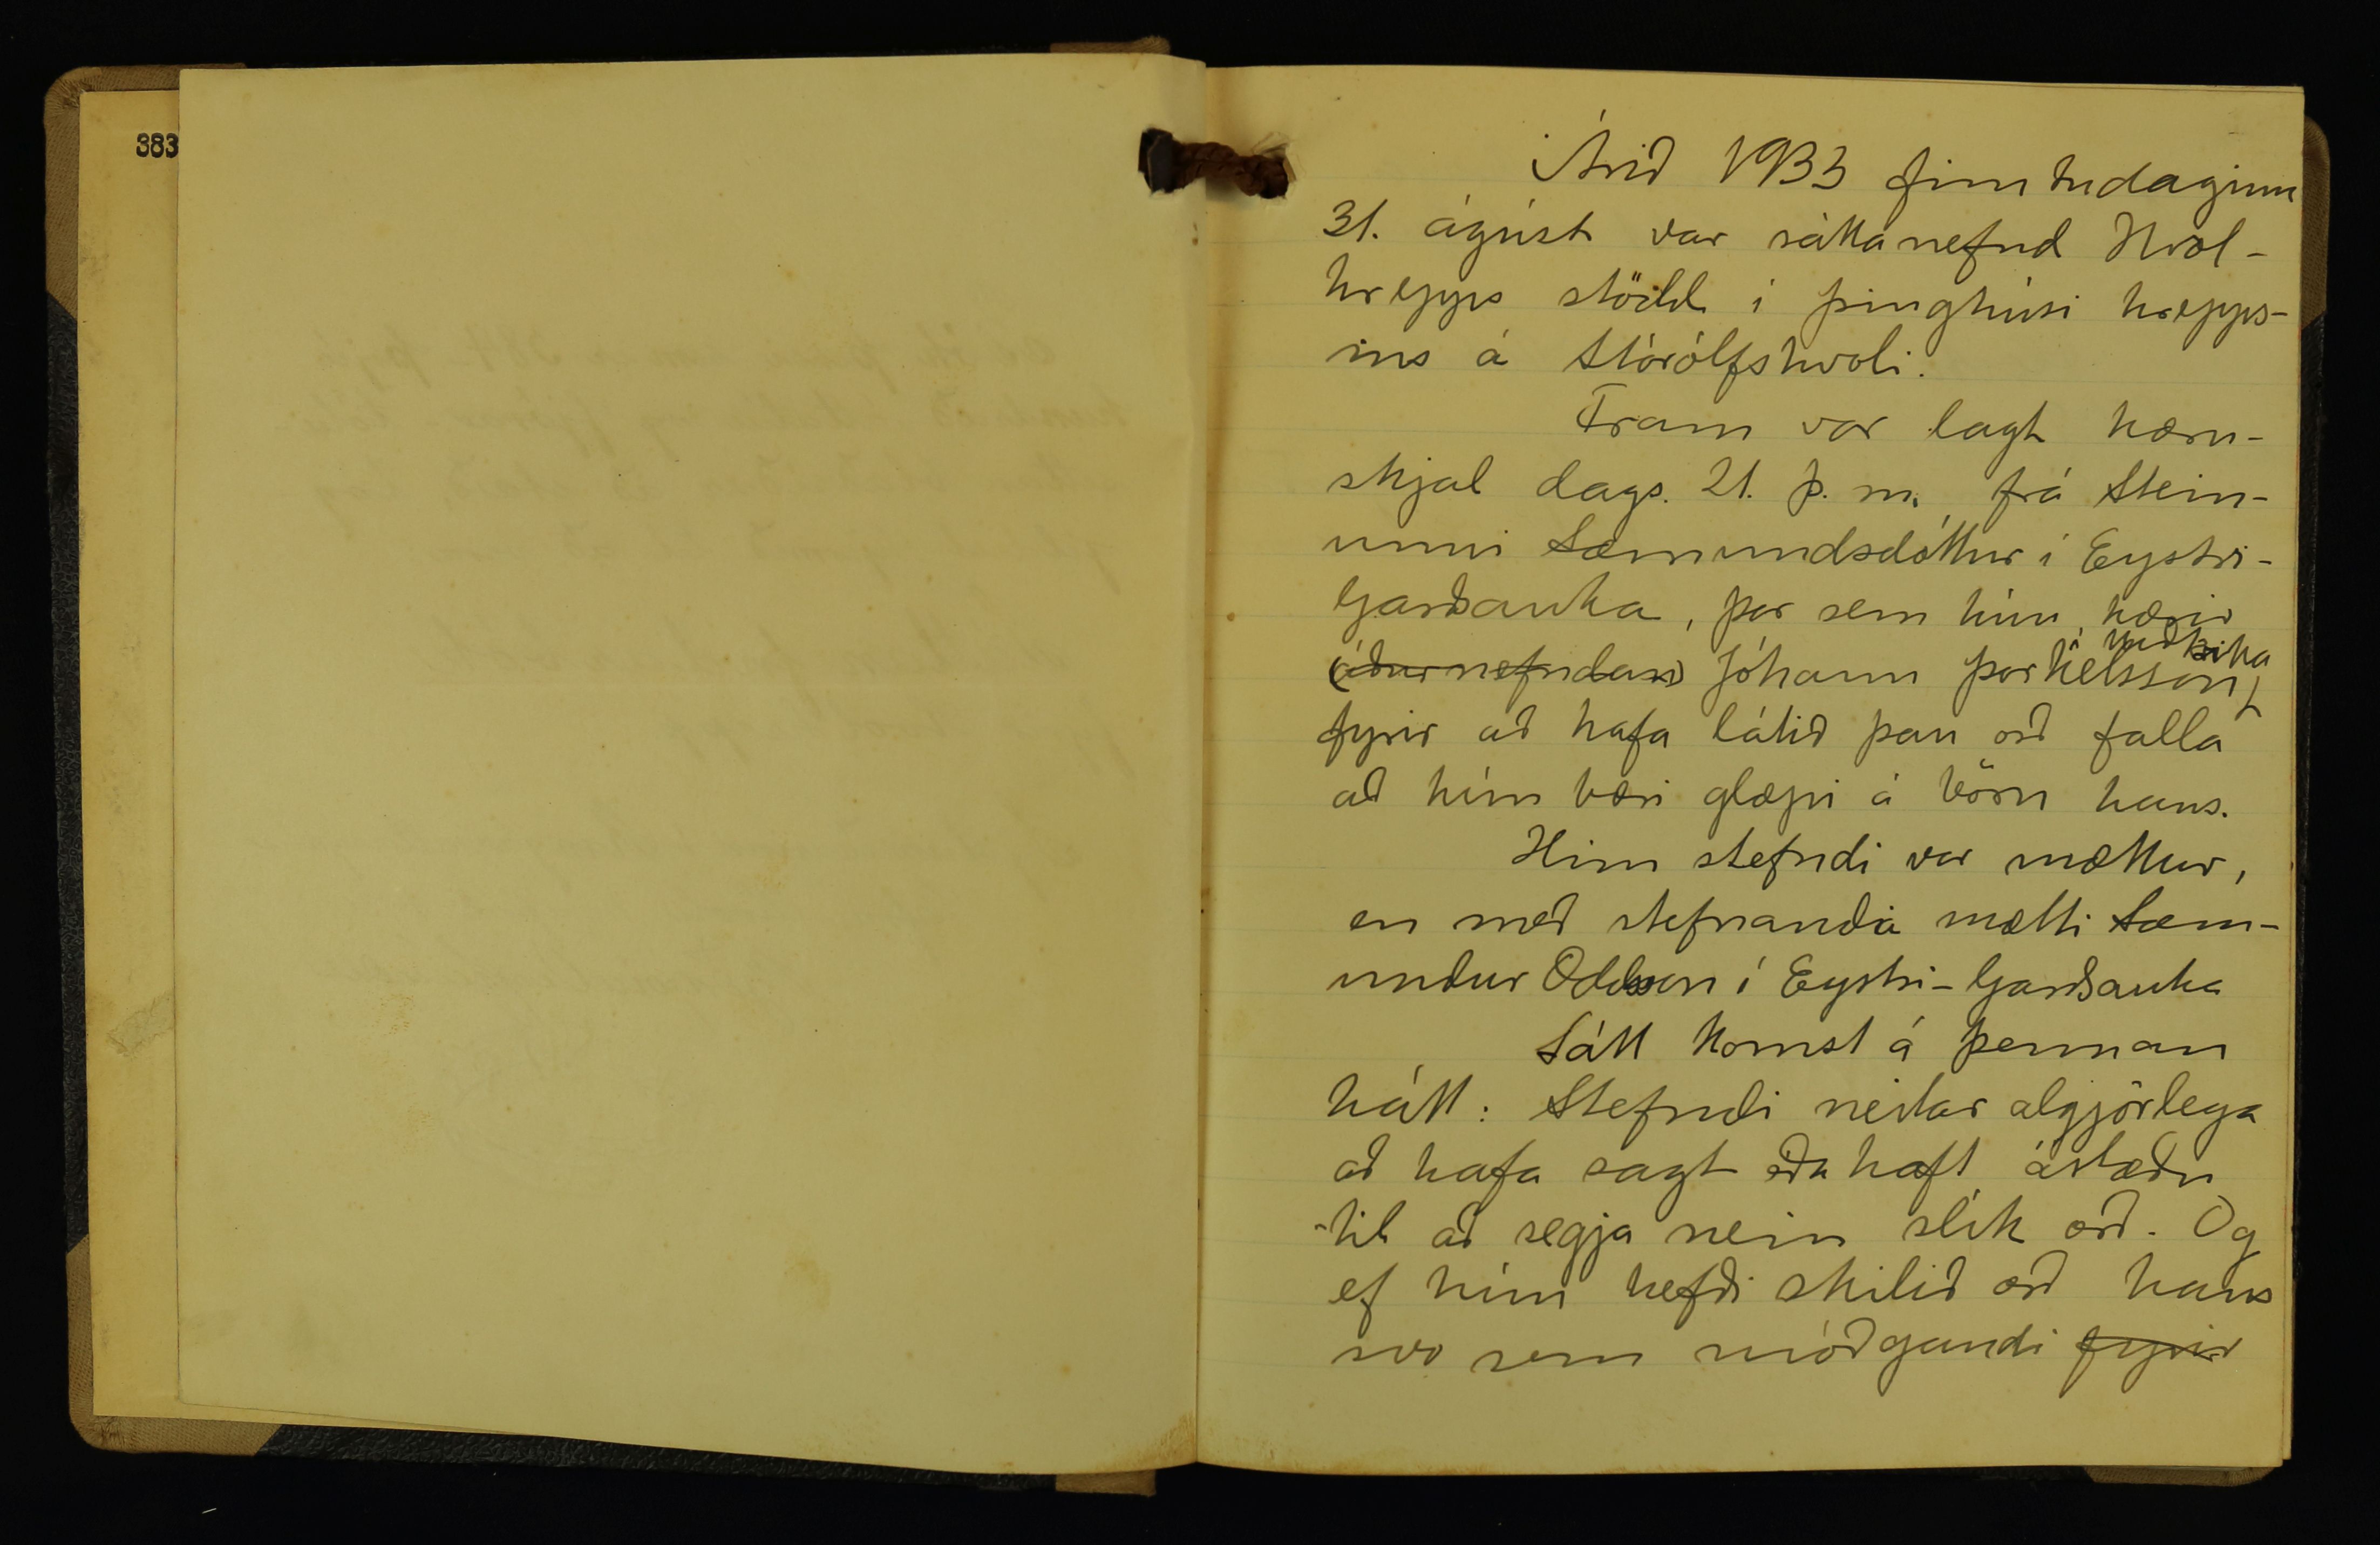 383
Árið 1933 fimtudaginn
31. ágúst var sáttanefnd Hvol-
hrepps stödd í þinghúsi hrepps-
ins á Stórólfshvoli.
Fram var lagt kæru-
skjal dags. 21. þ. m. frá Stein-
unni Sæmundsdóttur í Eystri-
Garðsauka, þar sem hún kærir
(áðurnefndan) Jóhann Þorkelsson,
fyrir að hafa látið þau orð falla
að hún bæri glæpi á börn hans.
Hinn stefndi var mættur,
en með stefnanda mætti Sæm-
undur Oddsson í Eystri-Garðsauka
Sátt komst á þennan
hátt: Stefndi neitar algjörlega
að hafa sagt eða haft ástæðu
til að segja nein slík orð. Og
ef hún hefði skilið orð hans
svo sem móðgandi fyrir